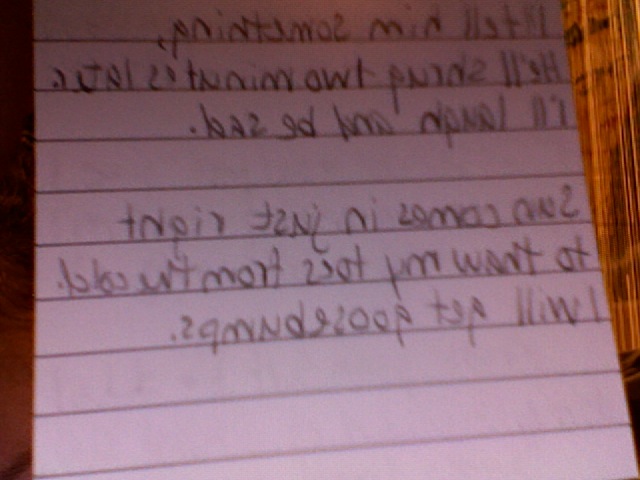 I'll tell him something,
He'll shrug two minutes later.
I'll laugh and be sad.
Sun comes in just right
to thaw my toes from the cold.
I will get goosebumps.